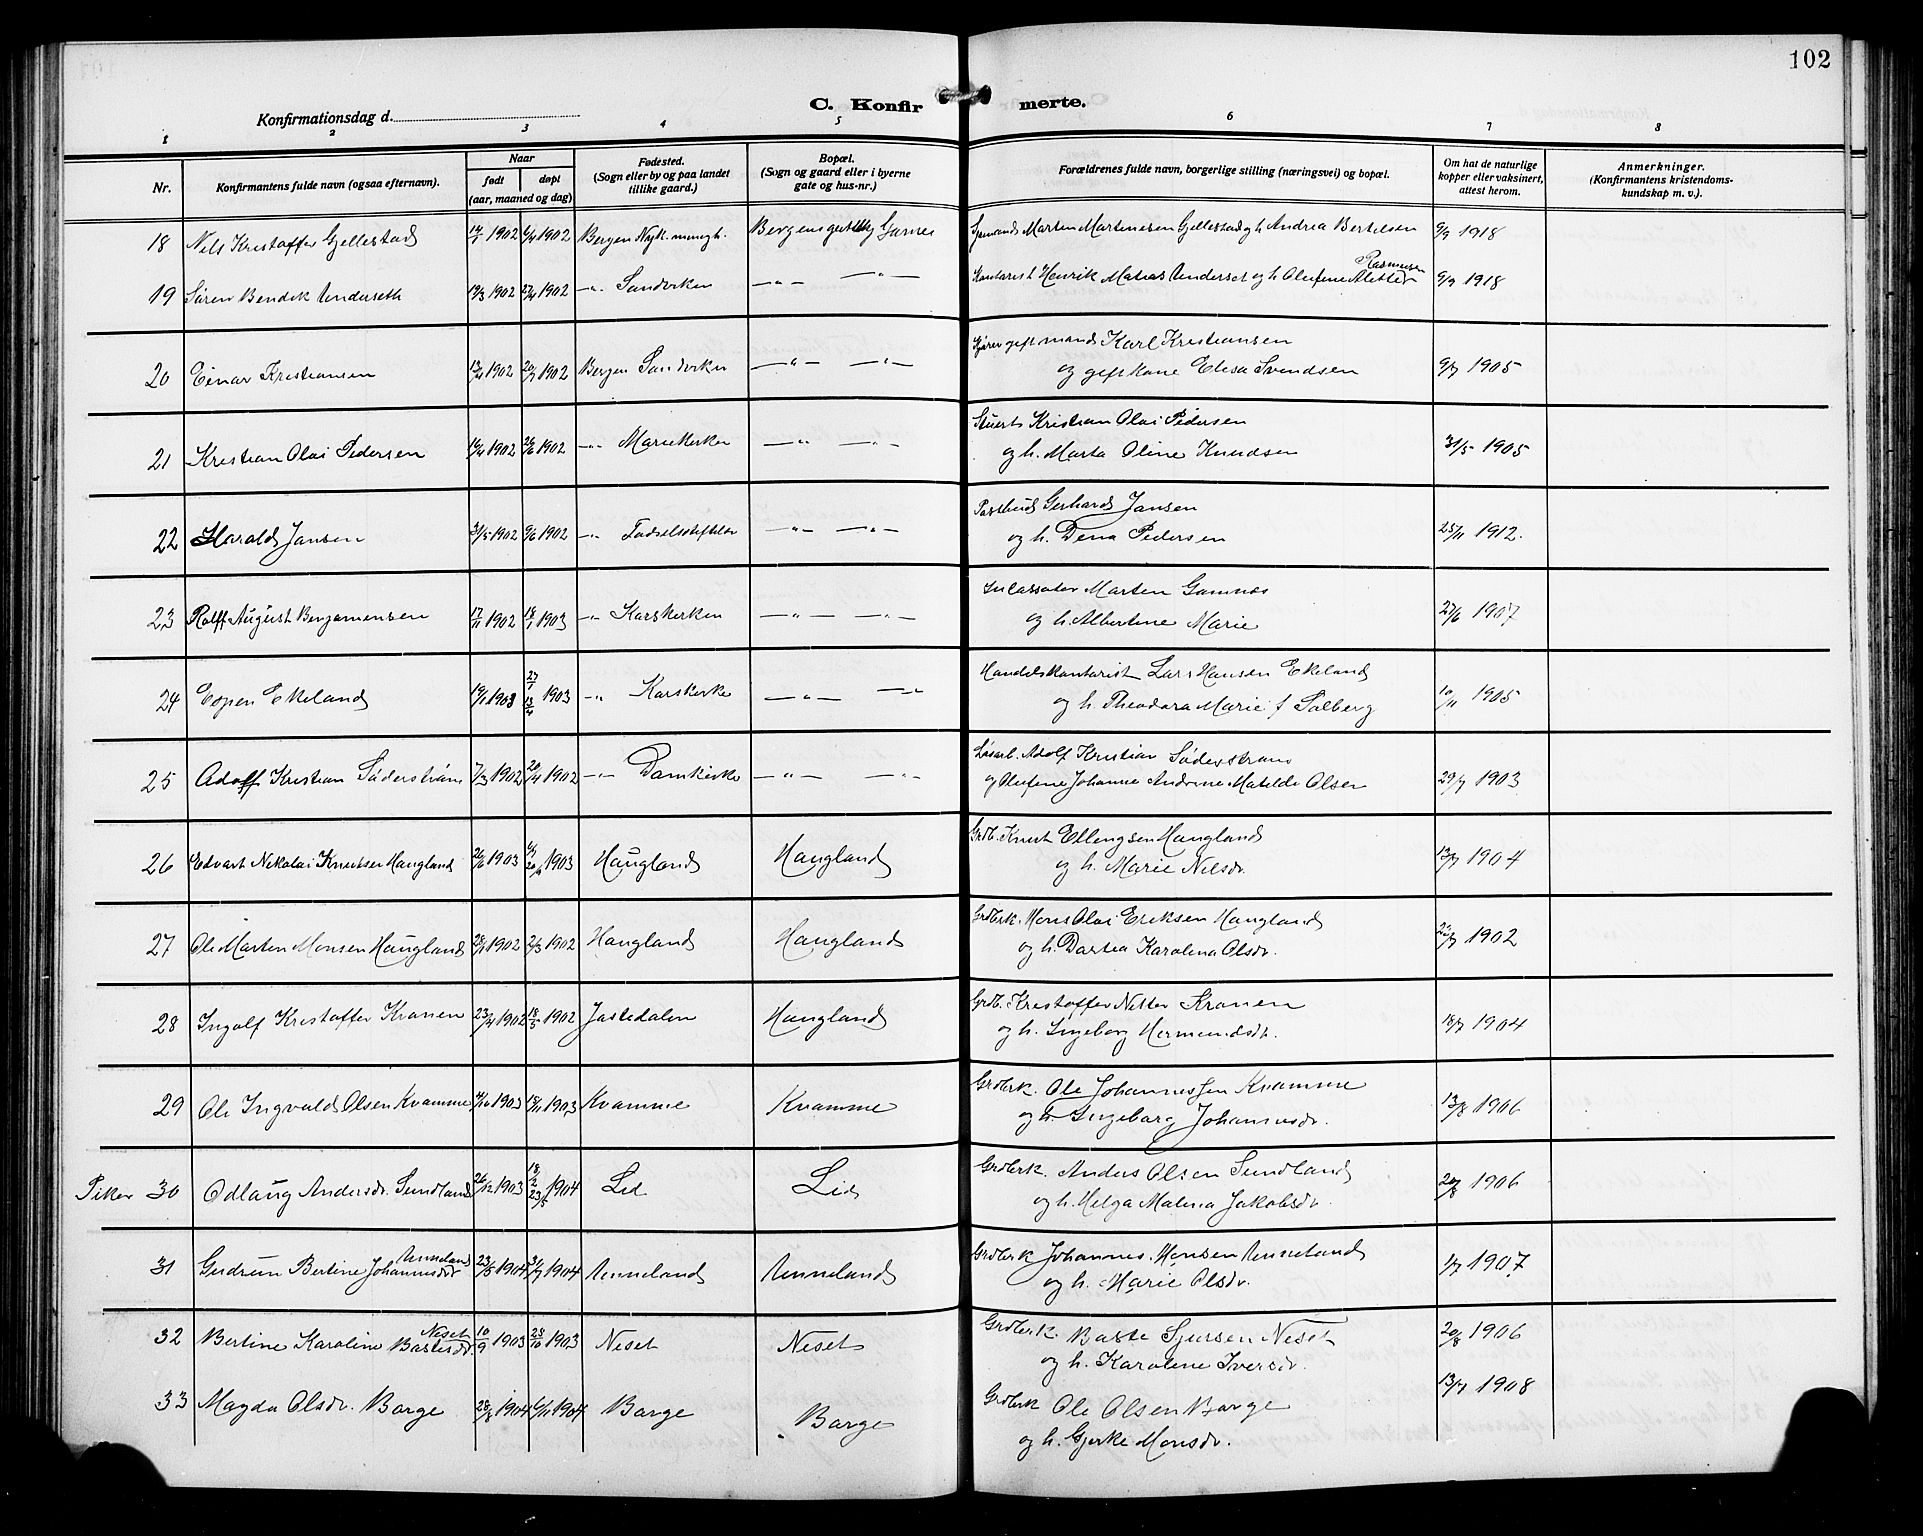 102
C. Konfirmerte.
Konfirmationsdag d.
1 2 3 4 5 6 7 8
Nr.
Konfirmantens fulde navn (ogsaa efternavn).
Naar
født døpt
(aar, maaned og dag)
Fødested.
(Sogn eller by og paa landet
tillike gaard.)
Bopæl.
(Sogn og gaard eller i byerne
gate og hus-nr.)
Forældrenes fulde navn, borgerlige stilling (næringsvei) og bopæl.
Om hat de naturlige
kopper eller vaksinert,
attest herom.
Anmerkninger.
(Konfirmantens kristendoms-
kundskap m. v.)
18 Nils Kristoffer Gjellestad 14/1 1902 6/4 1902 Bergen Nyk. menigh. Garnes Marten Martinesen Gjellestad og h. Andrea Bertelsen 9/7 1918
19 Søren Bendik Underseth 12/3 1902 27/4 1902 -"- Sandviken -"- -"- Henrik Matias Underset og h. Olufine Alette Rasmusen 9/7 1918
20 Einar Kristiansen 1902 20/7 1902 Bergen Sandviken -"- -"- Karl Kristiansen
og gift kone Elisa Svendsen 9/7 1905
21 Kristian Olai Pedersen 16/4 1902 26/6 1902 -"- Mariekirken -"- -"- Stuert Kristian Olai Pedersen
og h. Marta Oline Knudsen 31/5 1905
22 Harald Jansen 31/5 1902 9/6 1902 -"- Fødselsstiftelse -"- -"- Postbud Gerhard Jansen
og h. Dena Pedersen 25/11 1912.
23 Rolff August Benjamensen 17/11 1902 18/1 1903 -"- Korskirken -"- -"- Incassator Marten Gamnes
og h. Albertine Marie 27/6 1907
24 Espen Ekeland 1903 27/1 13/4 1903 -"- Korskirke -"- -"- Handelskontorist Lars Hansen Ekeland
og h. Theodora Marie f. Solberg 10/11 1905
25 Adolf Kristian Søderstrøm 7/3 1902 20/4 1902 -"- Domkirke -"- -"- Løsarb. Adolf Kristian Søderstrøm
og Olufine Johanne Andrine Matilde Olsen 29/7 1903
26 Edvart Nikolai Knutsen Haugland 1903 1903 Haugland Haugland Grdb. Knut Ellingsen Haugland
og h. Marie Nilsdr. 13/7 1904
27 Ole Marten Monsen Haugland 28/1 1902 2/3 1902 Haugland Haugland Grdbrk. Mons Olai Eriksen Haugland
og h. Dortea Karolina Olsdr. 1902
28 Ingolf Kristoffer Kronen 23/4 1902 18/5 1902 Jostedalen Haugland Grdb. Kristoffer Nilsen Kronen
og h. Ingeborg Hermundsdr. 18/7 1904
29 Ole Ingvald Olsen Kvamme 1903 1903 Kvamme Kvamme Grdbrk. Ole Johannessen Kvamme
og h. Ingeborg Johannesdr. 13/8 1906
Piker 30 Odlaug Andersdr. Sundland 26/12 1903 18/2 23/5 1904 Lid Lid Grdbrk. Anders Olsen Sundland
og h. Helga Malena Jakobsdr. 20/8 1906
31 Gudrun Bertine Johannesdr. Unneland 23/5 1904 1904 Unneland Unneland Grdbrk Johannes Monsen Unneland
og h. Marie Olsdr. 1/7 1907
32 Bertine Karoline Bastesdr. Neset 10/9 1903 25/10 1903 Neset Neset Grdbrk. Baste Sjursen Neset
og h. Karolene Iversdr. 20/8 1906
33 Magda Olsdr. Borge 1904 1904 Borge Borge Grdbrk Ole Olsen Borge
og h. Gjerke Monsdr. 13/7 1908